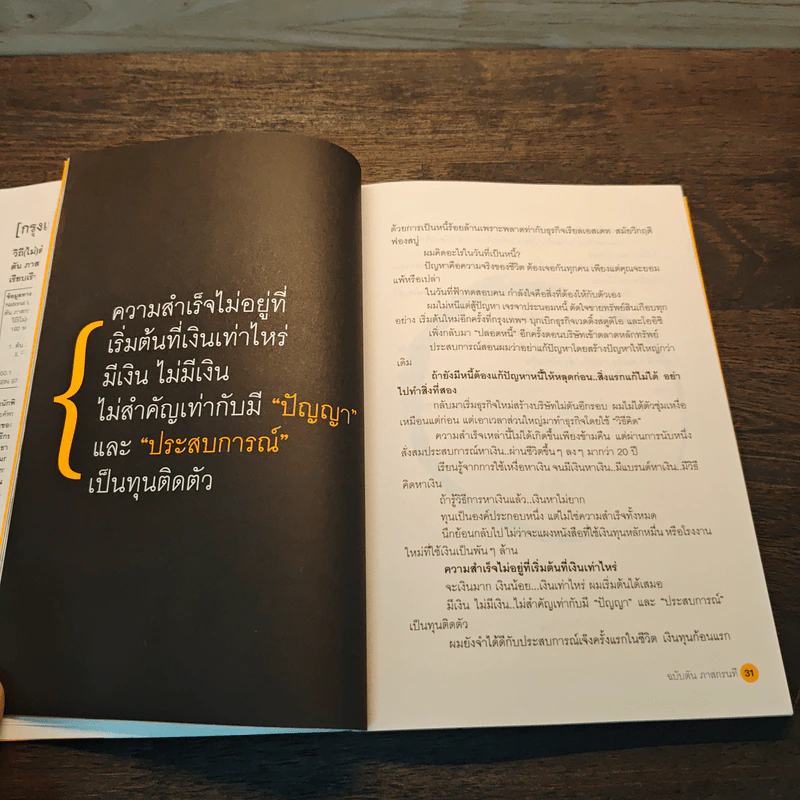 [กรุงเ
วิธี(ไม่)
ตัน ภาส
เรียบเรี
ความสำเร็จไม่อยู่ที่
เริ่มต้นที่เงินเท่าไหร่
มีเงิน ไม่มีเงิน
ไม่สำคัญเท่ากับมี “ปัญญา”
และ “ประสบการณ์”
เป็นทุนติดตัว
ด้วยการเป็นหนี้ร้อยล้านเพราะพลาดท่ากับธุรกิจเรียลเอสเตท สมัยวิกฤติ
ฟองสบู่
ผมคิดอะไรในวันที่เป็นหนี้?
ปัญหาคือความจริงของชีวิต ต้องเจอกันทุกคน เพียงแต่คุณจะยอม
แพ้หรือเปล่า
ในวันที่ฟ้าทดสอบคน กำลังใจคือสิ่งที่ต้องให้กับตัวเอง
ผมไม่หนีแต่สู้ปัญหา เจรจาประนอมหนี้ ตัดใจขายทรัพย์สินเกือบทุก
อย่าง เริ่มต้นใหม่อีกครั้งที่กรุงเทพฯ บุกเบิกธุรกิจเวดดิ้งสตูดิโอ และโออิชิ
เพิ่งกลับมา “ปลอดหนี้” อีกครั้งตอนบริษัทเข้าตลาดหลักทรัพย์
ประสบการณ์สอนผมว่าอย่าแก้ปัญหาโดยสร้างปัญหาให้ใหญ่กว่า
เดิม
ถ้ายังมีหนี้ต้องแก้ปัญหาหนี้ให้หลุดก่อน..สิ่งแรกแก้ไม่ได้ อย่า
ไปทำสิ่งที่สอง
กลับมาเริ่มธุรกิจใหม่สร้างบริษัทไม่ตันอีกรอบ ผมไม่ได้ตัวชุ่มเหงื่อ
เหมือนแต่ก่อน แต่เอาเวลาส่วนใหญ่มาทำธุรกิจโดยใช้ “วิธีคิด”
ความสำเร็จเหล่านี้ไม่ได้เกิดขึ้นเพียงข้ามคืน แต่ผ่านการนับหนึ่ง
สั่งสมประสบการณ์หาเงิน..ผ่านชีวิตขึ้นๆ ลงๆ มากว่า 20 ปี
เรียนรู้จากการใช้เหงื่อหาเงิน จนมีเงินหาเงิน..มีแบรนด์หาเงิน..มีวิธี
คิดหาเงิน
ถ้ารู้วิธีการหาเงินแล้ว..เงินหาไม่ยาก
ทุนเป็นองค์ประกอบหนึ่ง แต่ไม่ใช่ความสำเร็จทั้งหมด
นึกย้อนกลับไป ไม่ว่าจะแผงหนังสือที่ใช้เงินทุนหลักหมื่น หรือโรงงาน
ใหม่ที่ใช้เงินเป็นพันๆ ล้าน
ความสำเร็จไม่อยู่ที่เริ่มต้นที่เงินเท่าไหร่
จะเงินมาก เงินน้อย...เงินเท่าไหร่ ผมเริ่มต้นได้เสมอ
มีเงิน ไม่มีเงิน..ไม่สำคัญเท่ากับมี “ปัญญา” และ “ประสบการณ์”
เป็นทุนติดตัว
ผมยังจำได้ดีกับประสบการณ์เจ๊งครั้งแรกในชีวิต เงินทุนก้อนแรก
ฉบับตัน ภาสกรนที 31